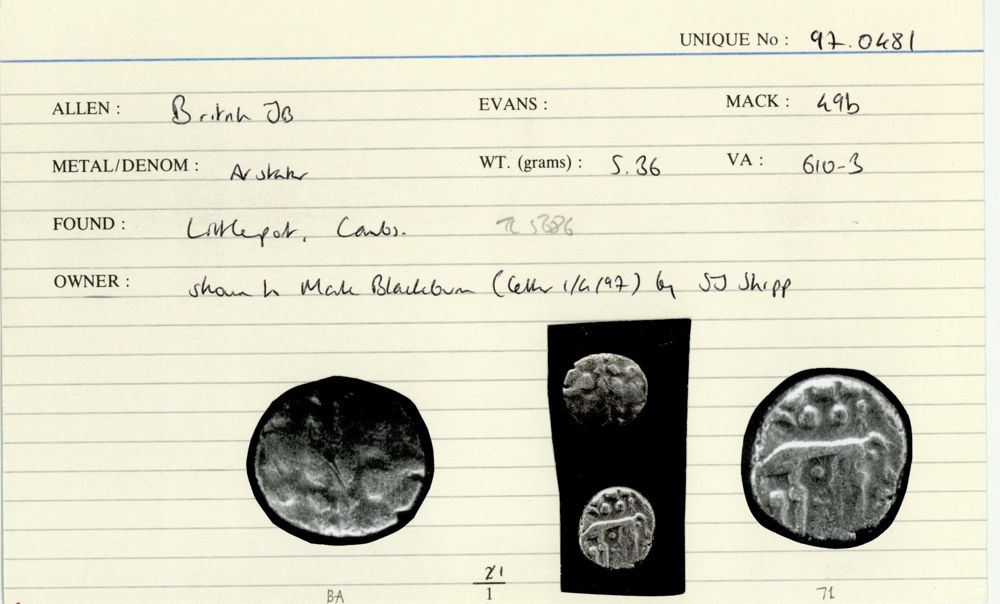 UNIQUE No : 97.0481
ALLEN : British JB EVANS : MACK : 49b
METAL/DENOM : AV stater WT. (grams) : 5.36 VA : 610-3
FOUND : Littleport, Cambs. TL 5686
OWNER : shown to Mark Blackburn (letter 1/4/97) by SJ Shipp
BA 1 71